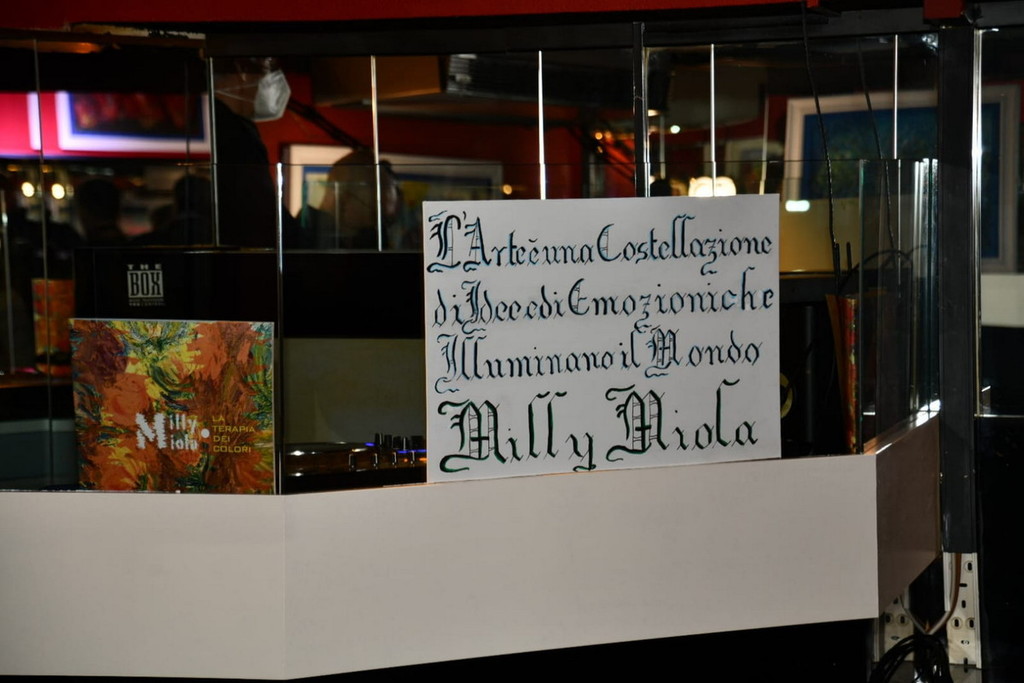 L'Arte è una Costellazione
di Idee ed i Emozioni che
Illuminano il Mondo
Milly Miola
THE
BOX
Milly
Miola.
LA
TERAPIA
DEI
COLORI